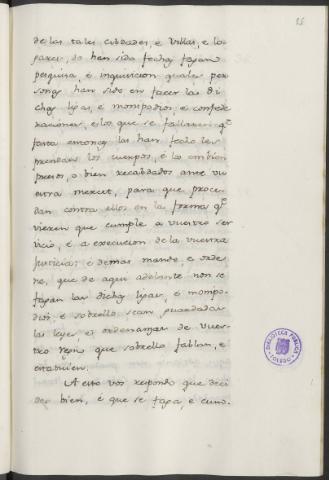 de las tales cibdades, e villas, e lo
gares, do han sido fechas fagan
pesquisa, e inquisicion quales per
sonas han sido en facer las di
chas ligas, e monipodios, e confede
raciones, e los que se fallaren q.e
fasta entonces las han fecho les
prendan los cuerpos, e los embien
presos, o bien recabdados ante vu
estra merced, para que proce
dan contra ellos en la forma q.e
vieren que cumple a vuestro ser
vicio, e a execucion de la vuestra
justicia: e demas mande e orde
ne, que de aqui adelante non se
fagan las dichas ligas, e monipo
dios, e sobrello sean guardadas
las leyes, e ordenanzas de vues
tros regnos que sobrello fablan, e
establecen.
A esto vos respondo que deci
des bien, e que se faga, e cum-
BIBLIOTECA PUBLICA
TOLEDO